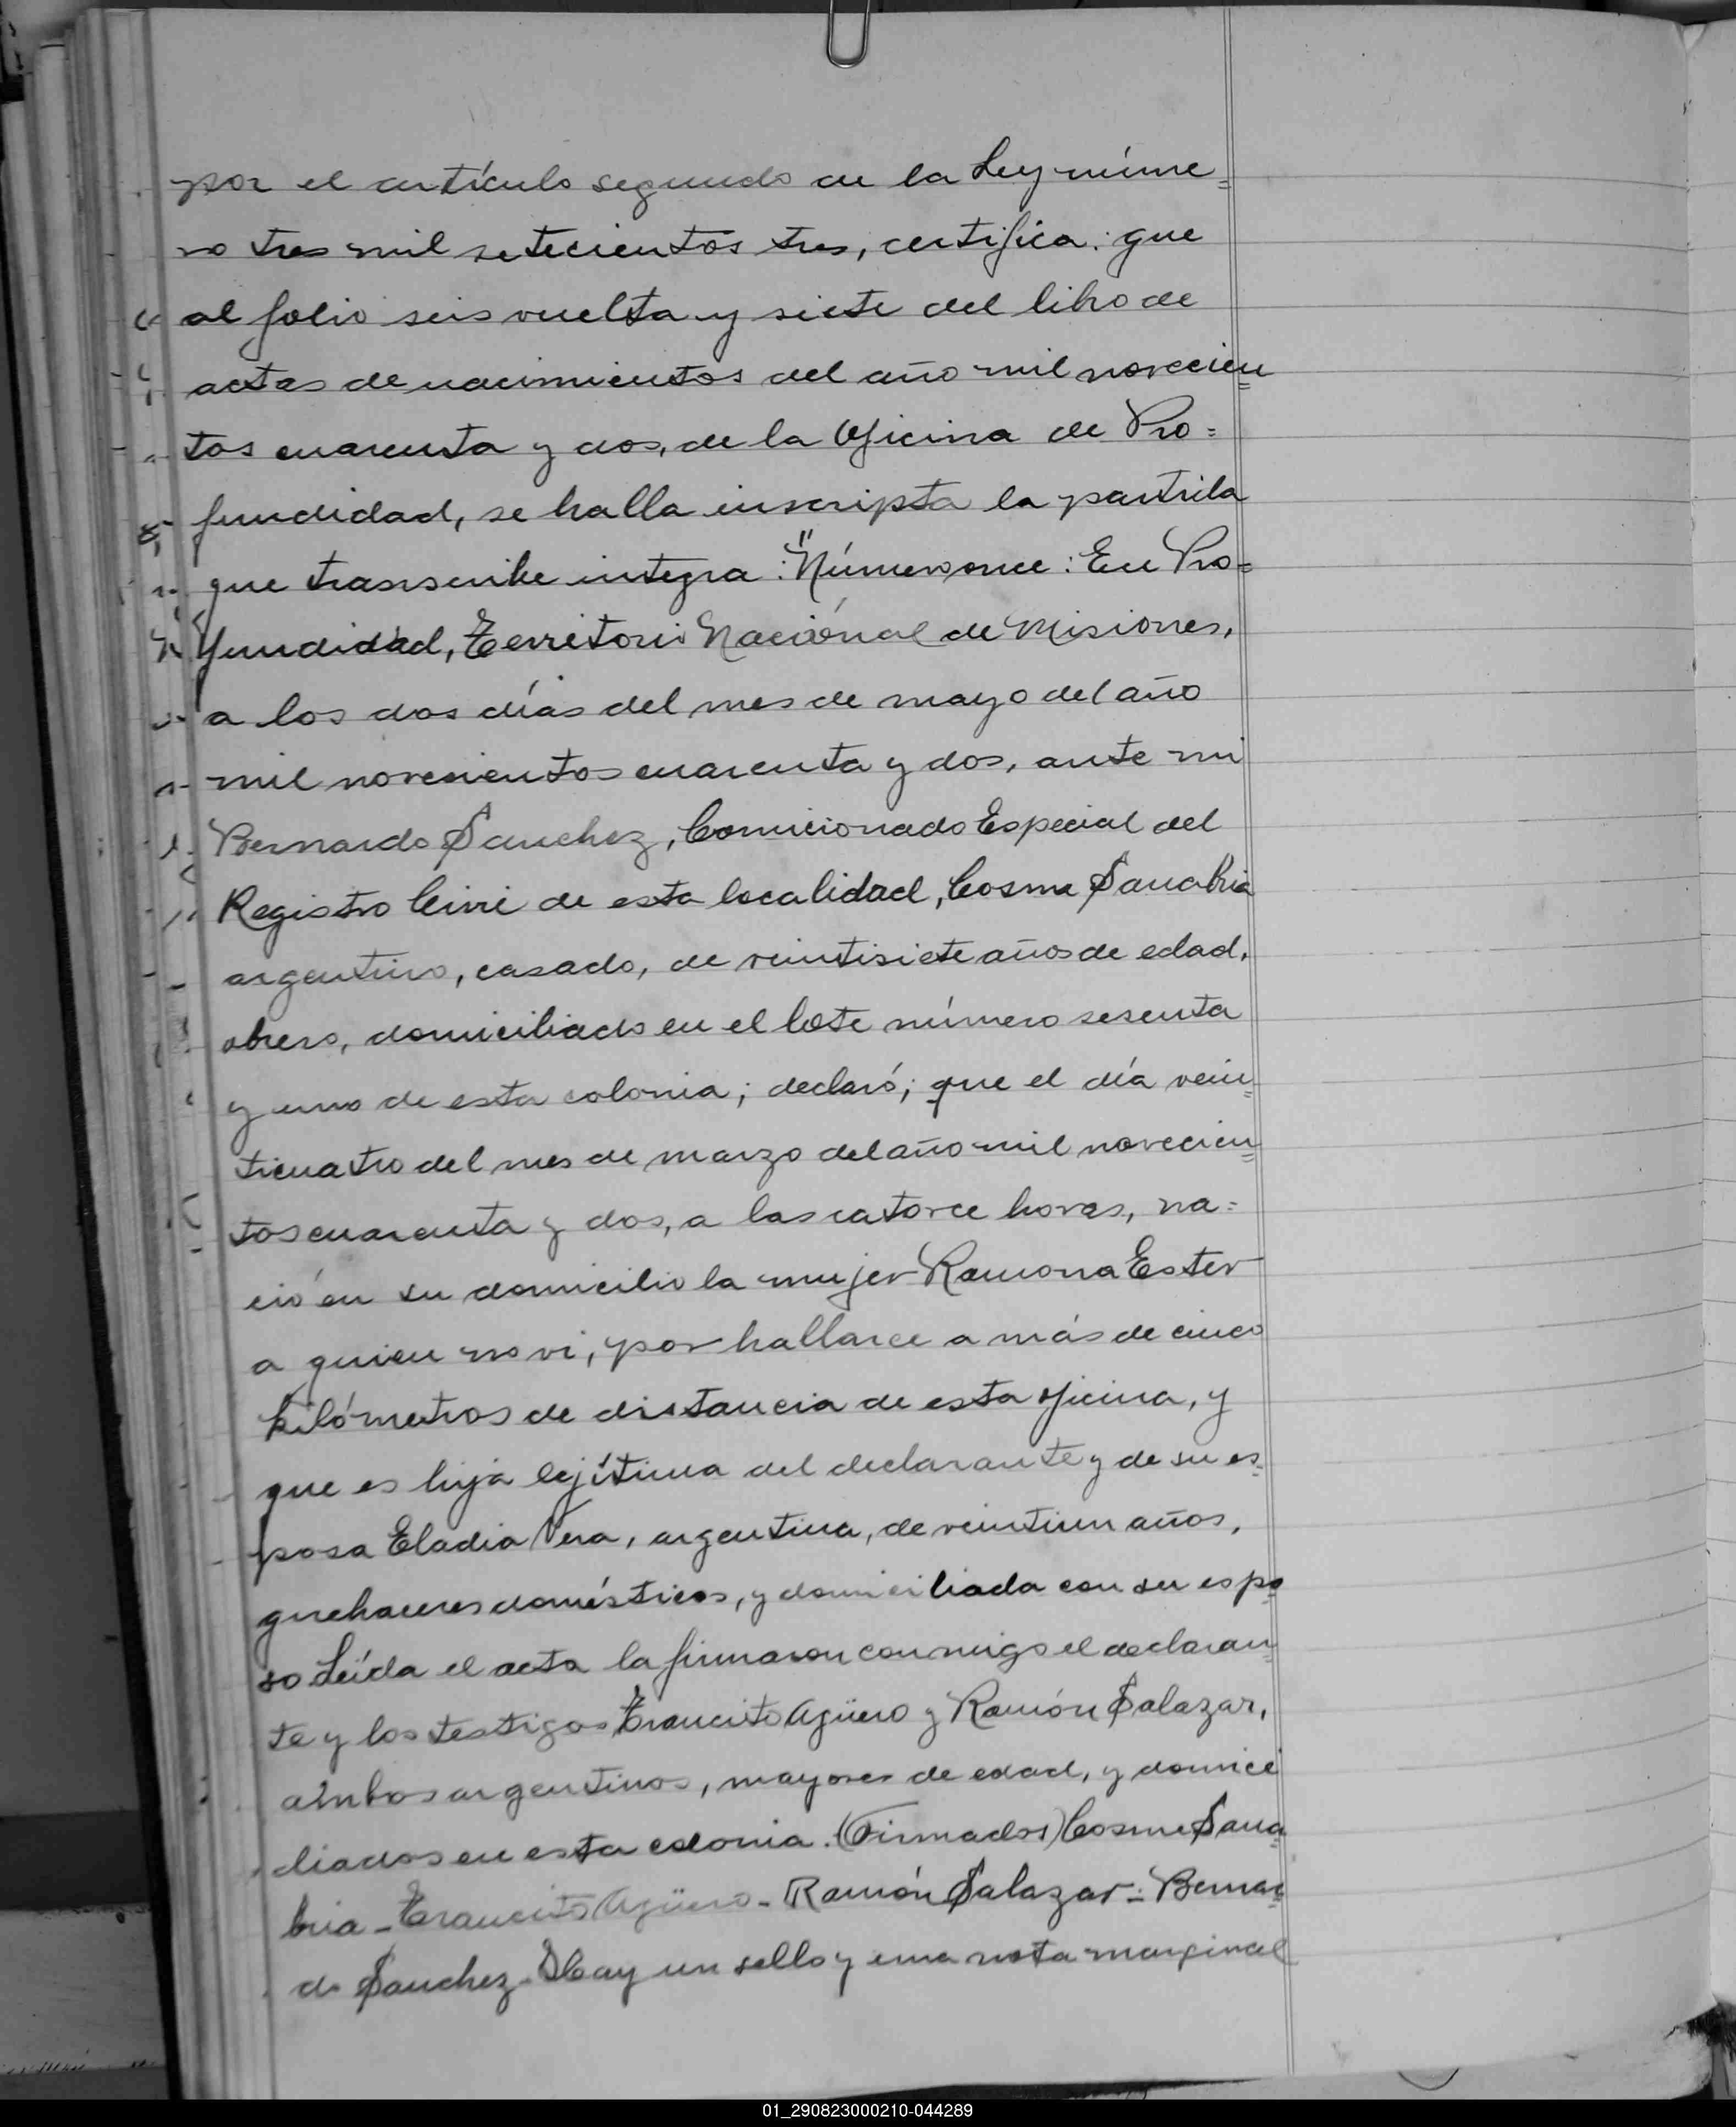 por el artículo segundo de la Ley núme=
ro tres mil setecientos tres, certifica: que
al folio seis vuelta y siete del libro de
actas de nacimientos del año mil novecien=
tos cuarenta y dos, de la Oficina de Pro=
fundidad, se halla inscripta la partida
que transcribe integra: "Número once: En Pro=
fundidad, Territorio Nacional de Misiones,
a los dos días del mes de mayo del año
mil novecientos cuarenta y dos, ante mi
Bernardo Sanchez, Comicionado Especial del
Registro Civil de esta localidad, Cosme Sanabria
argentino, casado, de veintisiete años de edad,
obrero, domiciliado en el lote número sesenta
y uno de esta colonia; declaró; que el día vein=
ticuatro del mes de marzo del año mil novecien=
tos cuarenta y dos, a las catorce horas, na=
ció en su domicilio la mujer Ramona Ester
a quien no vi, por hallarce a más de cinco
kilómetros de distancia de esta oficina, y
que es hija lejítima del declarante y de su es=
posa Eladia Vera, argentina, de veintiun años,
quehaceres domésticos, y domiciliada con su espo=
so Leída el acta la firmaron conmigo el declaran=
te y los testigos Trancito Agüero y Ramón Salazar,
ambos argentinos, mayores de edad, y domici
liados en esta colonia. (Firmados) Cosme Sana=
bria - Trancito Agüero - Ramón Salazar - Bernar=
do Sanchez - Hay un sello y una nota marginal
01_290823000210-044289